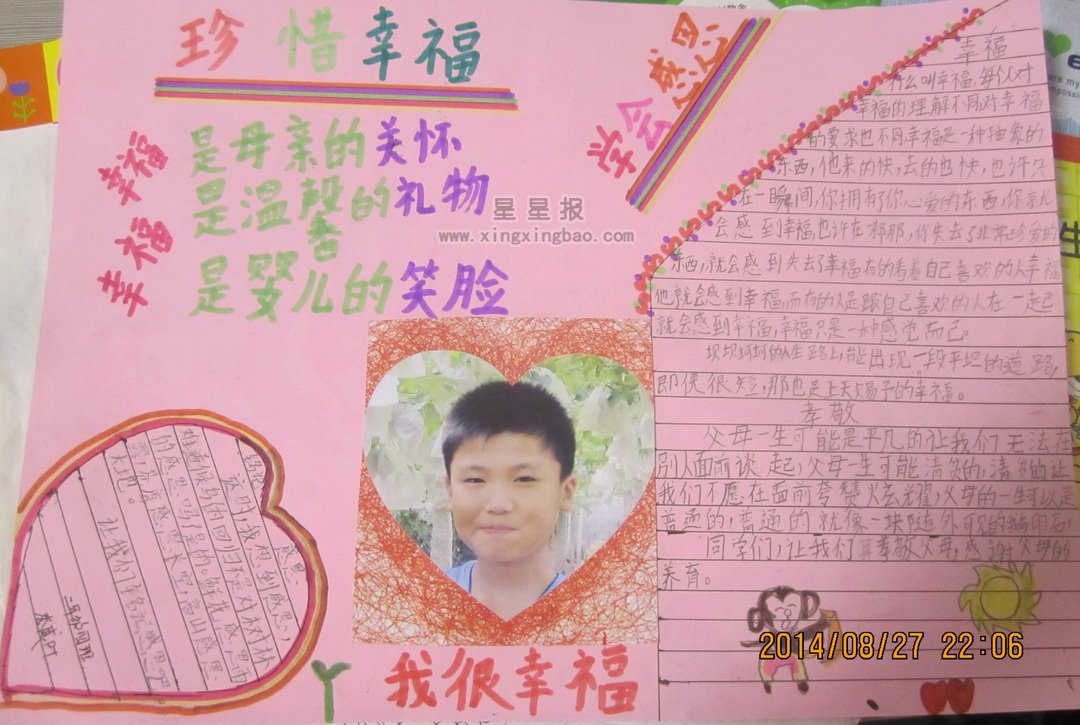 珍惜幸福
学会感恩
幸福是母亲的关怀
是温馨的礼物
幸福是婴儿的笑脸
星星报
www.xingxingbao.com
我很幸福
幸福
什么叫幸福,每似对
幸福的理解不同对幸福
的要求也不同幸福是一种抽象的
东西,他来的快,去的也快,也许只
在一瞬间,你拥有了你心爱的东西,你就
会感到幸福也许在刹那,你失去了非常珍爱的
东西,就会感到失去了幸福有的看着自己喜欢的人幸福
他就会感到幸福,而有的人是跟自己喜欢的人在一起
就会感到幸福,幸福只是一种感觉而已。
坝坝坷坷的人生路上,能出现一段平坦的道路,
即使很短,那也是上天赐予的幸福。
孝敬
父母一生可能是平凡的让我们无法在
别人面前谈起,父母一生可能清贫的,清贫的让
我们不愿在面前夸赞炫耀,父母的一生可以是
普通的,普通的就像一块随处可见的
同学们,让我们孝敬父母,感谢父母的
养育。
感恩
感恩,我想到感恩,
落叶
的感恩鲜花感恩雨
露,高山感恩
大地。
让我们
2014/08/27 22:06